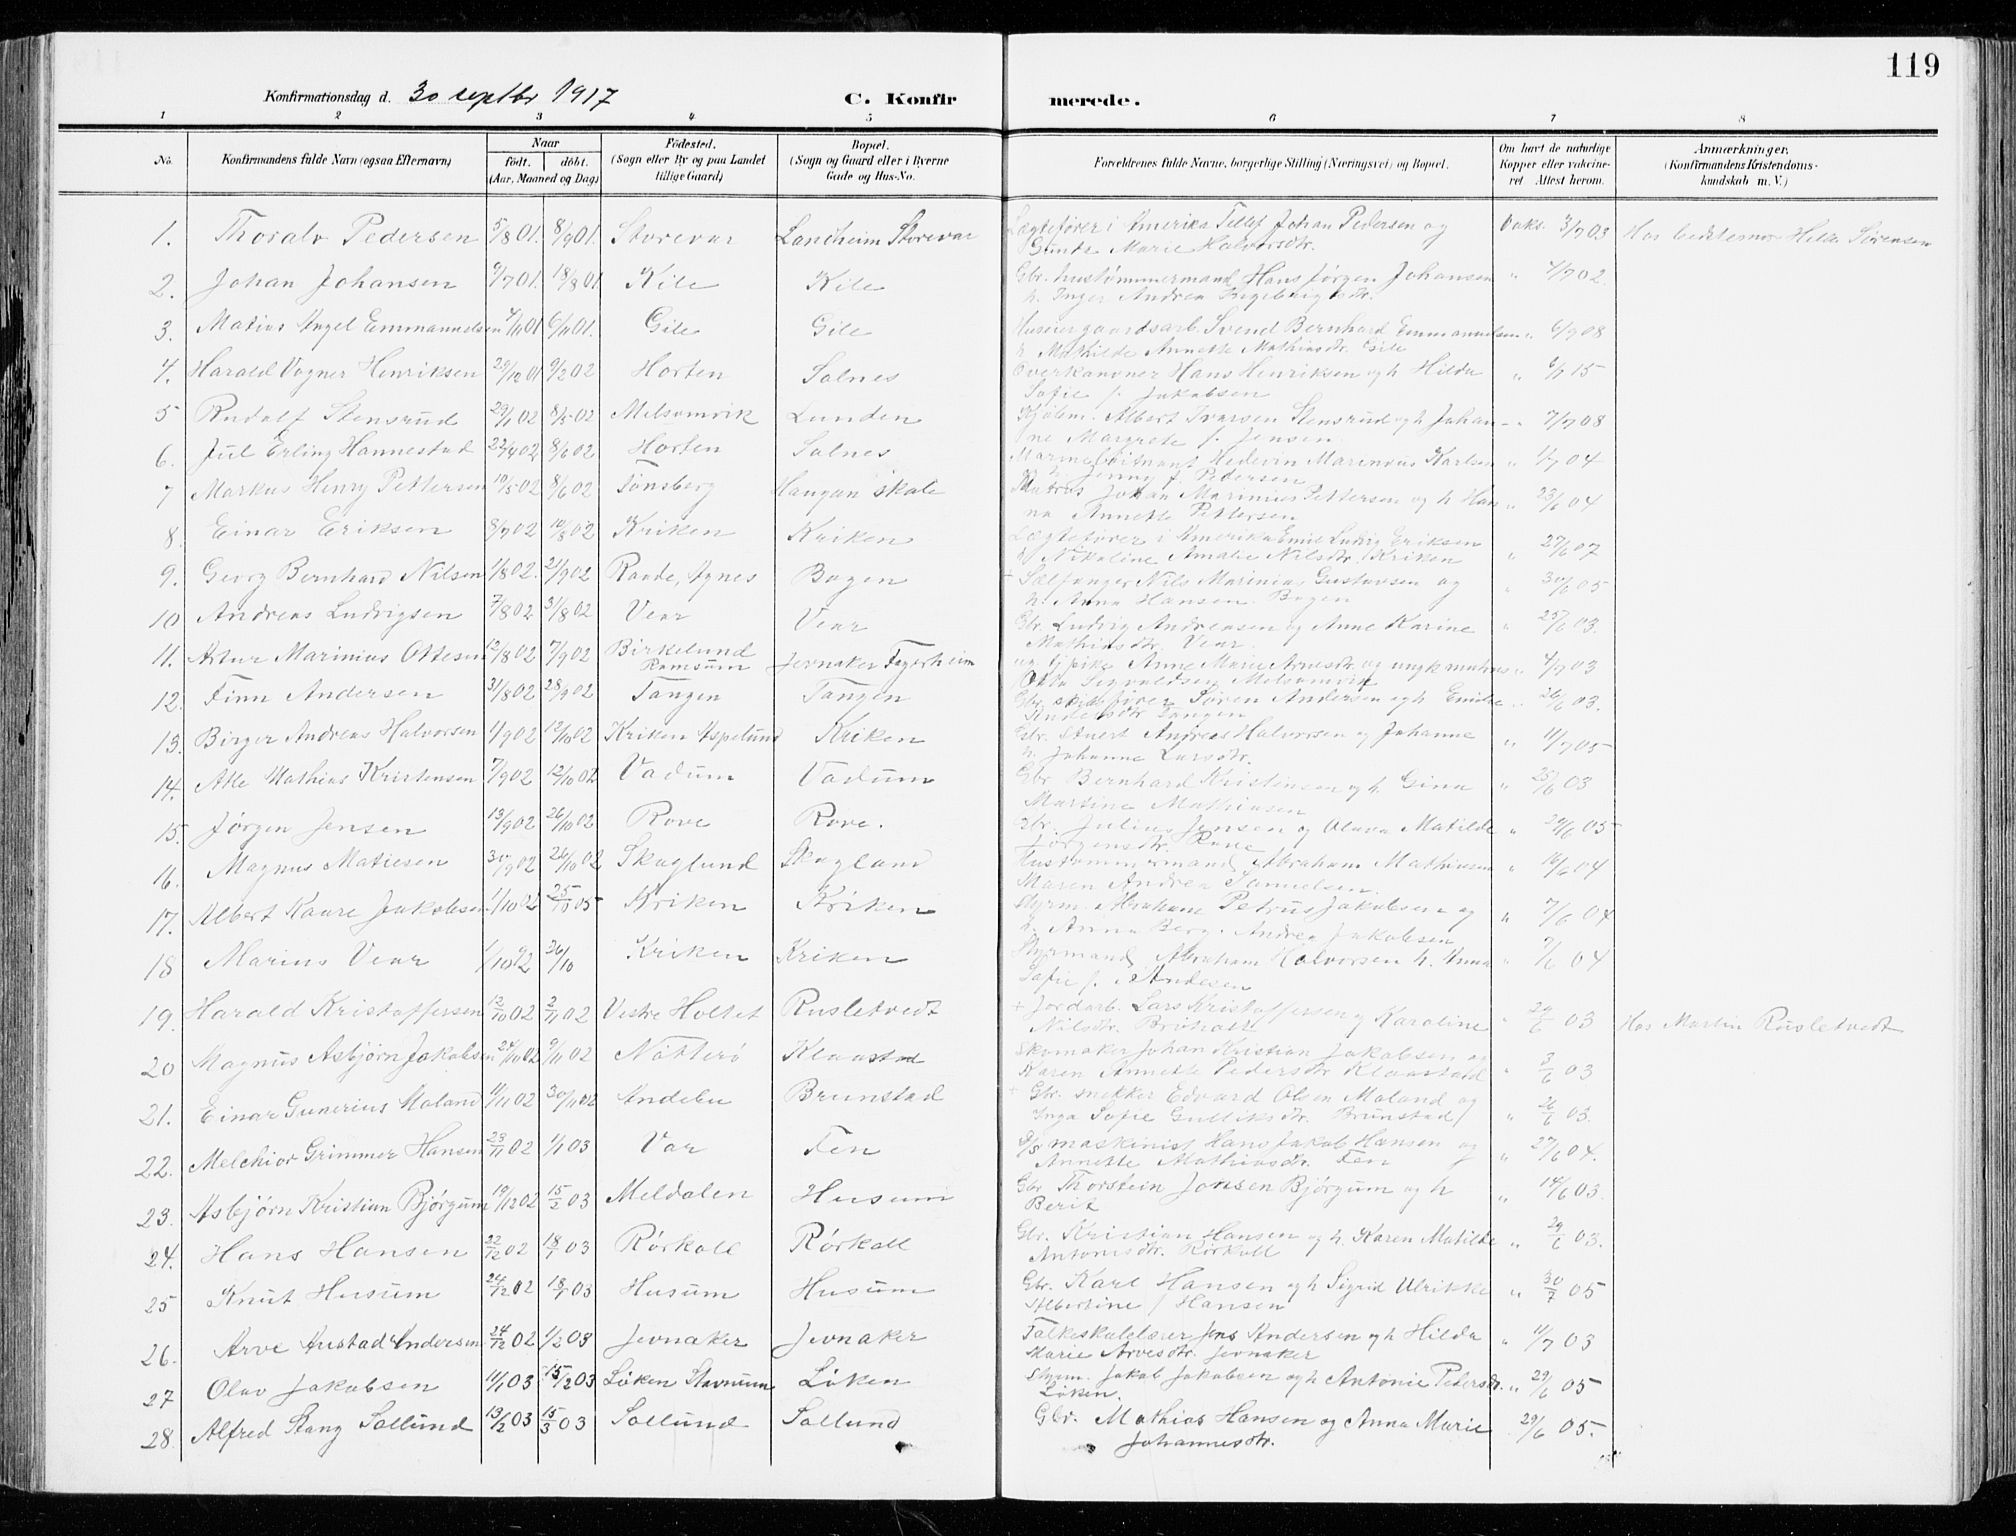 119
Konfirmationsdag d. 30 septbr 1917 C. Konfir merede.
1 2 3 4 5 6 7 8
No. Konfirmandens fulde Navn (ogsaa Efternavn) Naar født. døbt. (Aar, Maaned og Dag) Fødested. (Sogn eller By og paa Landet tillige Gaard) Bopæl. (Sogn og Gaard eller i Byerne Gade og Hus-No. Forældrenes fulde Navne, borgerlige Stilling (Næringsvei) og Bopæl. Om havt de naturlige Kopper eller vakcineret. Attest herom. Anmærkninger. (Konfirmandens Kristendomskundskab m. V.)
1. Thoralv Pedersen 5/8 01. 8/9 01. Storevar Landheim Storevar Lægtefører i Amerika Tellef Johan Pedersen og Vaks. 3/7 03 Hos bedstemor Helle Sørensen
Gunde Marie Halvorsdtr.
2. Johan Johansen 9/7 01. 18/8 01 Kile Kile Gbr. hustømmermand Hans Jørgen Johansen " 4/7 02
h. Inger Andrea
3. Matias Angel Emmanuelsen 4/10 01 6/11 01. Gile Gile Huseier gaardsarb. Svend Bernhard Emmanuelsen " 6/9 08
h Mathilde Annette Mathiasdtr. Gile
4. Harald Vagner Henriksen 29/12 01 9/2 02 Horten Solnes Overkanoner Hans Henriksen og h Hilda " 6/7 15
Sofie f. Jakobsen
5 Rudolf Stensrud 29/1 02 8/5 02 Melsomvik Lunden Albert Ivarsen Stensrud og h Johan- " 7/7 08
ne Margrete f. Jensen
6. Jul Erling Hannestad 22/4 02 8/6 02 Horten Solnes Marineløitnant Hedevin Marenius Karlsen " 1/7 04
h Jenny f. Pedersen
7 Markus Henry Pettersen 10/5 02 8/6 02 Tønsberg Haugan skole Matros Johan Marinius Pettersen og h Han- " 23/6 04
na Annette Pettersen
8. Einar Eriksen 8/7 02 10/8 02 Kriken Kriken Lægtefører i Amerika Emil Ludvig Eriksen
Nikoline Amalie Nilsdtr. Kriken " 27/6 07
9. Georg Bernhard Nilsen 1/8 02. 21/9 02 Raade, Agnes Bogen + Sælfanger Nils Marinius Gustavsen og " 30/6 05
h. Anna Hansen. Bogen
10 Andreas Ludvigsen 7/8 02 31/8 02 Vear Vear Gbr. Ludvig Andreasen og Anne Karine " 25/6 03.
Mathiasdtr. Vear.
11. Artur Marinius Ottesen 12/8 02 7/9 02 Birkelund Ramsum Jevnaker Fagerheim ug. tj.pike Anne Marie Arnesdtr. og ungk. matros " 4/7 03
Otto Sigvaldsen Melsomvik
12. Finn Andersen 31/8 02 28/9 02 Tangen Tangen Gbr. skibsfører Søren Andersen og h Emilie " 26/6 03.
Andersdtr. Tangen
13. Birger Andreas Halvorsen 1/9 02 12/10 02 Kriken Aspelund Kriken Gbr. Stuert Andreas Halvorsen og Johanne " 11/7 05
h. Johanne Larsdtr.
14. Atle Mathias Kristensen 7/9 02 12/10 02 Vadum Vadum Gbr. Bernhard Kristensen og h. Gina " 25/6 03
Martine Mathiasen
15. Jørgen Jensen 13/9 02 26/10 02 Rove Rove. Gbr. Julius Jensen og Olava Matilde " 24/6 05
Jørgensdtr. Rove
16. Magnus Matiesen 30/9 02 26/10 02 Skaglund Skagland Hustømmermand Abraham Mathiasen " 16/6 04
Maren Andrea Samuelsen.
17. Albert Kaare Jakobsen 1/10 02 25/10 05 Kriken Kriken Styrm. Abraham Petrus Jakobsen og " 7/6 04
h. Anna Berg. Andrea Jakobsen
18 Marius Vear 1/10 02 26/10 Kriken Kriken Styrmand Abraham Halvorsen h. Anna " 9/6 04
Sofie f. Andesen
19. Harald Kristoffersen 12/10 02 2/11 02 Vestre Holtet Rusletvedt + Jordarb. Lars Kristoffersen og Karoline " 29/6 03 Hos Martin Rusletvedt
Nilsdtr.
20 Magnus Asbjørn Jakobsen 24/10 02 9/11 02 Nøtterø Klaastad Skomaker Johan Kristian Jakobsen og " 3/6 03
Karen Annette Pedersdtr Klaastad
21. Einar Gunerius Moland 11/11 02 30/11 02 Andebu Brunstad + Gbr. snekker Edvard Olsen Moland og " 26/6 03.
Inga Sofie Gulliksdtr. Brunstad
22. Melchior Grimmer Hansen 23/11 02 1/1 03 Var Fen D/S maskinist Hans Jakob Hansen og " 27/6 04.
Annette Mathiasdtr. Fen
23. Asbjørn Kristian Bjørgum 19/12 02 15/2 03 Meldalen Husum Gbr Thorstein Jonsen Bjørgum og h " 14/6 03.
Berit
24. Hans Hansen 22/12 02 18/1 03 Rørkoll Rørkoll Gbr. Kristian Hansen og h. Karen Matilde " 29/6 03.
Antonisdtr. Rørkoll
25 Knut Husum 24/12 02 18/1 03 Husum Husum Gbr. Karl Hansen og h Sigrid Ulrikke " 30/7 05
Albertine f Hansen
26. Arve Austad Andersen 24/12 02 1/2 03 Jevnaker Jevnaker Folkeskolelærer Jens Andersen og h Hilda " 11/7 03
Marie Arvesdtr. Jevnaker
27 Olav Jakobsen 14/1 03 15/2 03 Løken Stavnum Løken Styrm. Jakob Jakobsen og h Antonie Pedersdtr. " 29/6 05
Løken.
28. Alfred Stang Sollund 13/2 03 15/3 03 Sollund Sollund Gbr. Mathias Hansen og Anna Marie 29/6 05.
Johannesdtr.